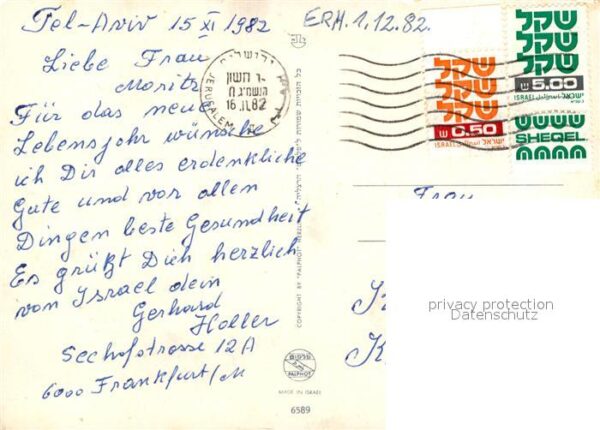 Tel-Aviv 15 XI 1982
ERH. 1.12.82.
Liebe Frau
Moritz
Für das neue
Lebensjahr wünsche
ich Dir alles erdenkliche
Gute und vor allen
Dingen beste Gesundheit
Es grüßt Dich herzlich
von Israel dein
Gerhard
Holler
6000 Frankfurt/M
ירושלים
JERUSALEM
16.11.82
שקל
שקל
שקל
0.50
ISRAEL
שקל
שקל
שקל
5.00
ISRAEL
SHEQEL
COPYRIGHT BY "PALPHOT" HERZLIA
PALPHOT
MADE IN ISRAEL
6589
Frau
privacy protection
Datenschutz